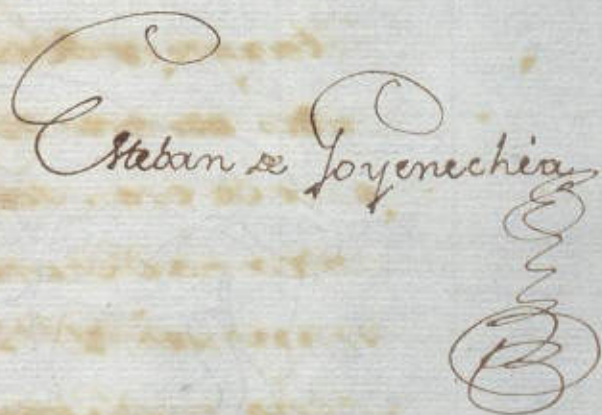 Esteban de Goyenechéa